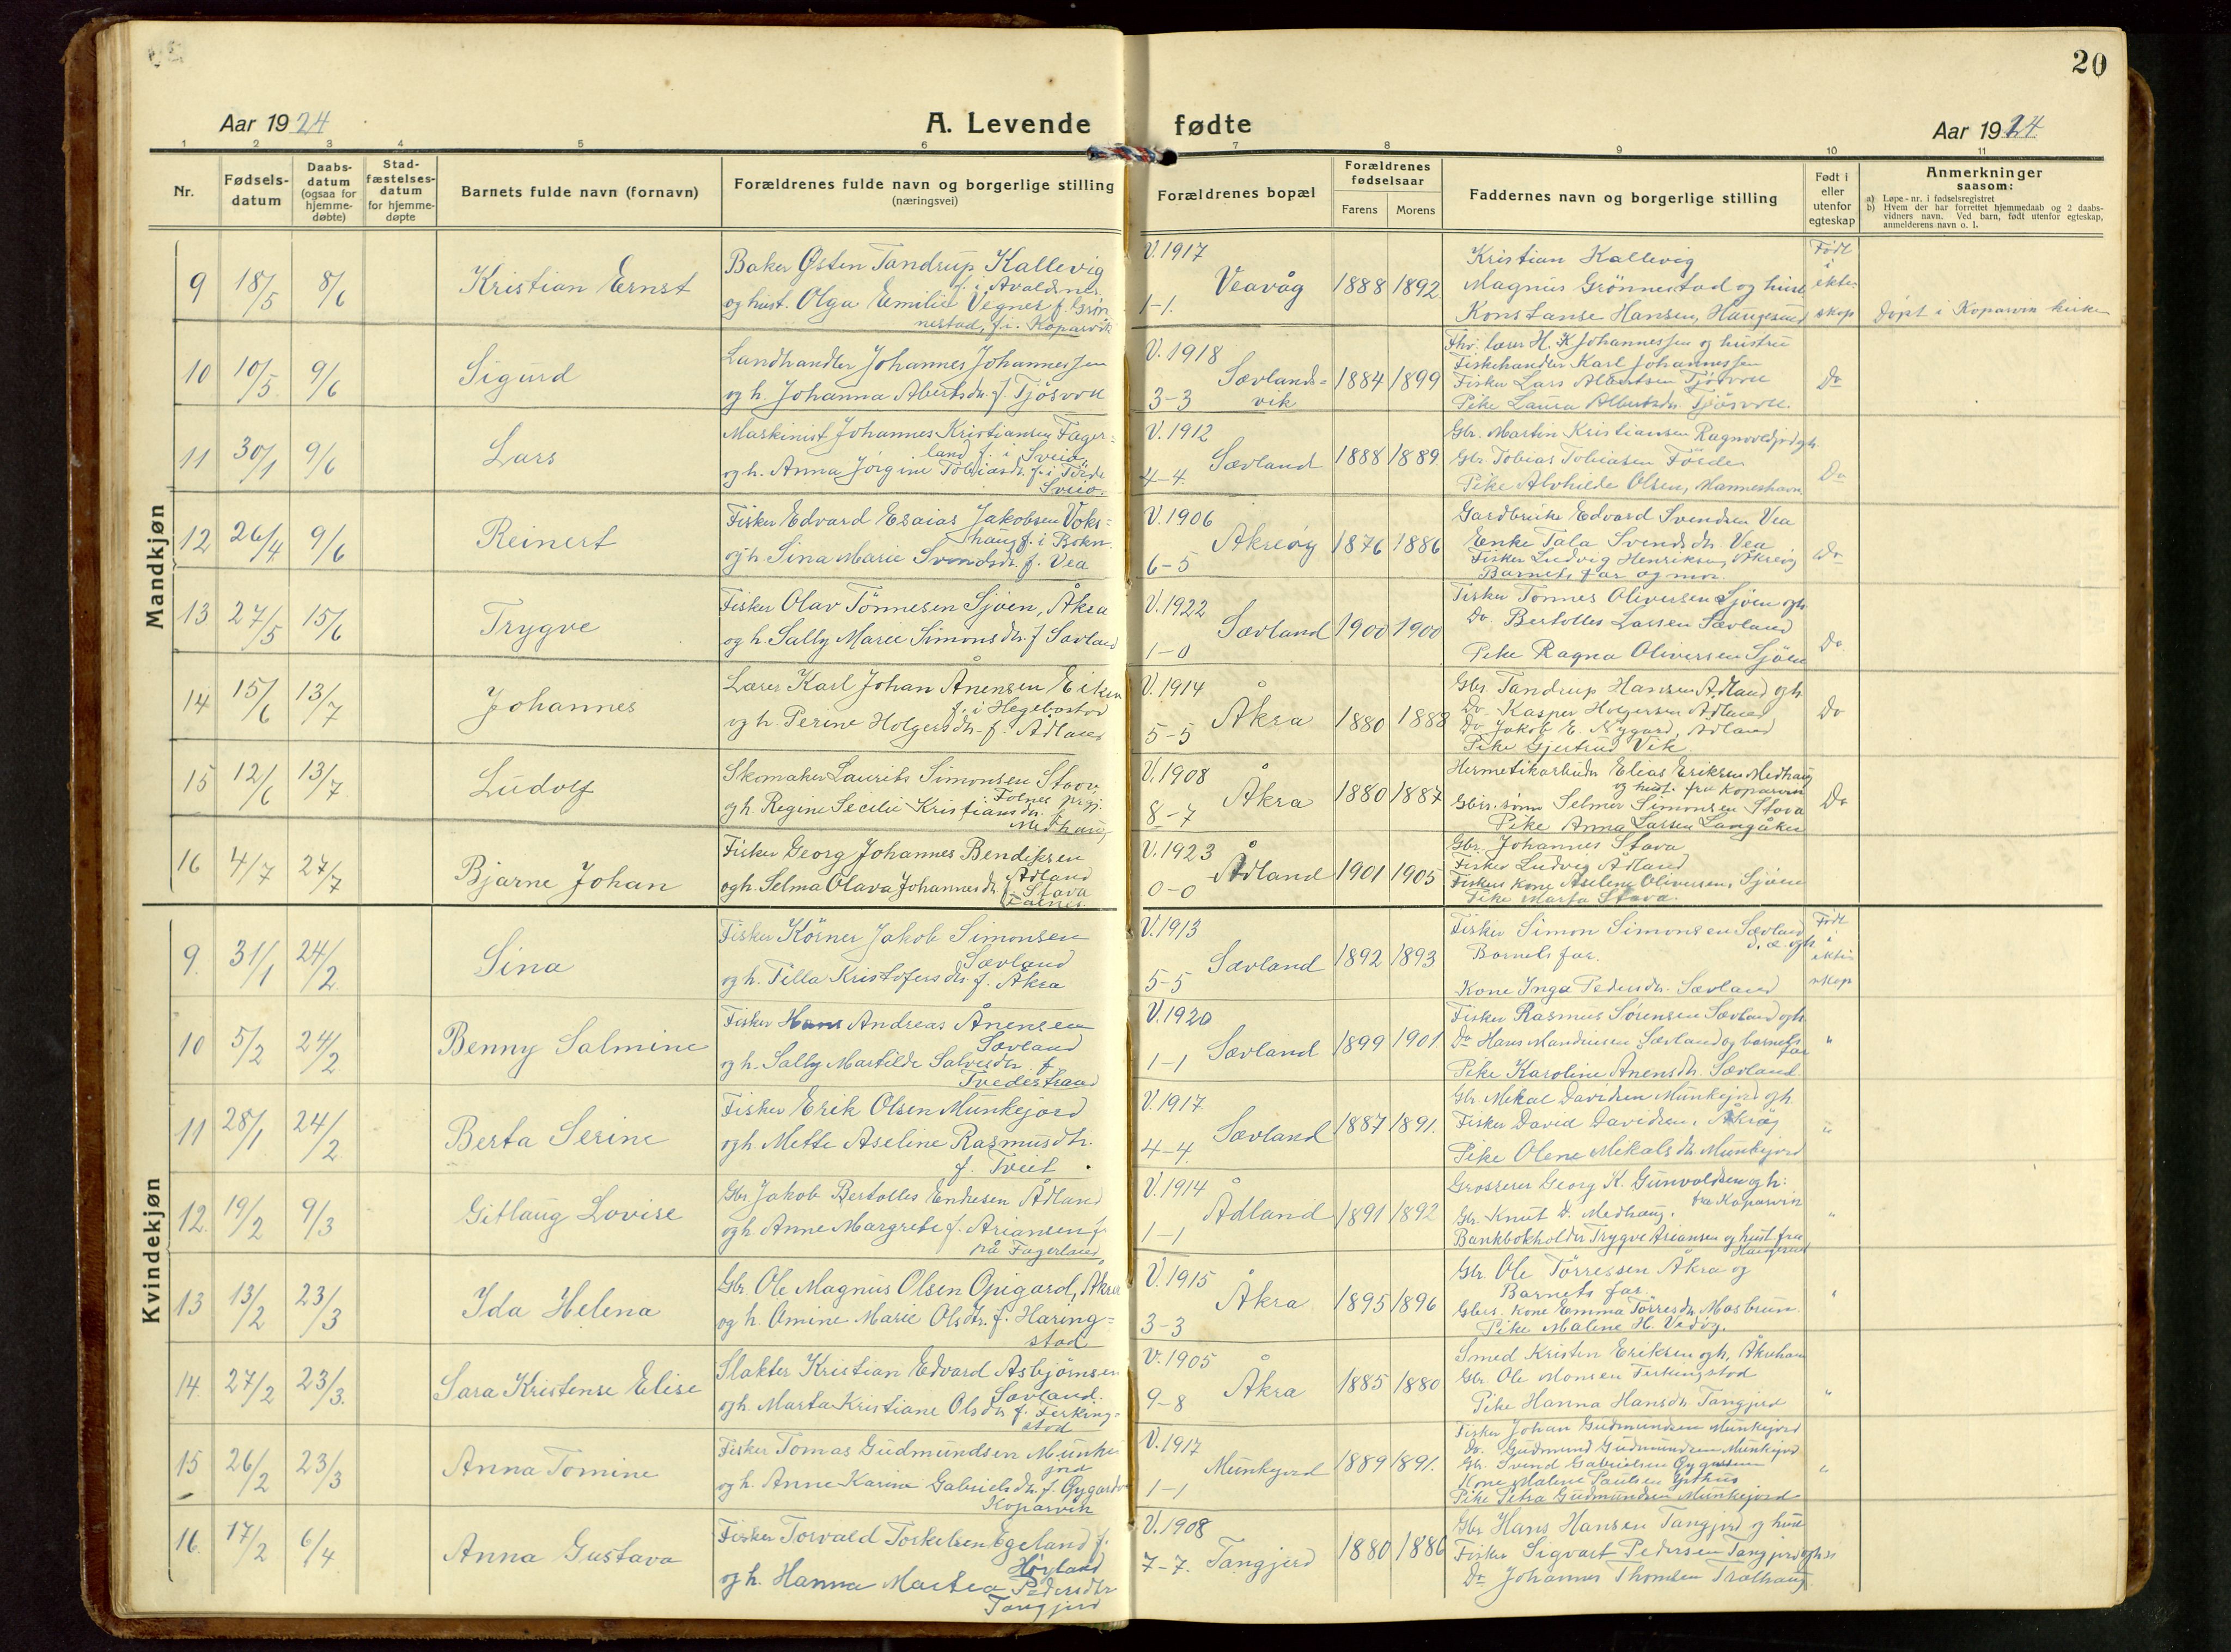 20
Aar 1924
A. Levende
fødte
Aar 1924
1 2 3 4 5 6 7 8 9 10 11
Nr.
Fødsels-
datum
Daabs-
datum
(ogsaa for
hjemme-
døbte)
Stad-
fæstelses-
datum
for hjemme-
døpte
Barnets fulde navn (fornavn)
Forældrenes fulde navn og borgerlige stilling
(næringsvei)
Forældrenes bopæl
Forældrenes
fødselsaar
Farens Morens
Faddernes navn og borgerlige stilling
Født i
eller
utenfor
egteskap
Anmerkninger
saasom:
a) Løpe-nr. i fødselsregistret
b) Hvem der har forrettet hjemmedaab og 2 daabs-
vidners navn. Ved barn, født utenfor egteskap,
anmelderens navn o. l.
Mandkjøn
9 18/5 8/6 Kristian Ernst
Baker Østen Tandrup Kallevig
f. i Avaldsnes
og hust. Olga Emilie Vegner f. Grøn
nestad, f. i. Kopervik
V. 1917
Veavåg
1-1.
1888 1892
Kristian Kallevig
Magnus Grönnestad og hust
Konstanse Hansen, Haugesund
Født
i
ekte-
skap
Döpt i Kopervik kirke
10 10/5 9/6 Sigurd
Landhandler Johannes Johannessen
og h. Johanna Albertsdr. f. Tjösvoll
V. 1918
Sævlands-
vik
3-3
1884 1899
Fhv. lærer H. K Johannessen og hustru
Fiskehandler Karl Johannessen
Fisker Lars Albertsen Tjösvoll
Pike Laura Albertsdr. Tjösvoll.
Do
11 30/1 9/6 Lars
Maskinist Johannes Kristiansen Fager-
land f. i Sveio.
og h. Anna Jorgine Tobiasdr. f. i Förde
Sveio.
V. 1912
Sævland
4-4
1888 1889
Gbr. Martin Kristiansen
Gbr. Tobias Tobiasen Förde
Pike Alvhilde Olsen, Manneshavn
Do
12 26/4 9/6 Reinert
Fisker Edvard Esaias Jakobsen Voks-
haug f. i Bokn.
og h. Sina Marie Svendsdr. f. Vea
V. 1906
Akreøy
6-5
1876 1886
Gardbruker Edvard Svendsen Vea
Enke Tala Svendsdr. Vea
Fisker Ludvig Henriksen, Åkreöy
Barnets far og mor.
Do
13 27/5 15/6 Trygve
Fisker Olav Tönnesen Sjöen, Åkra
og h. Sally Marie Simonsdr. f Sævland
V. 1922
Sævland
1-0
1900 1900
Fisker Tönnes Oliversen Sjöen ogh.
Do. Bertolles Larsen Sævland
Pike Ragna Oliversen Sjöen
Do
14 15/6 13/7 Johannes
Lærer Karl Johan Ånensen Eiken
f. i Hegebostad
og h. Perine Holgersdr. f. Ådland
V. 1914
Åkra
5-5
1880 1888
Gbr Tandrup Hansen Ådland og h.
Do. Kasper Holgersen Ådland
Do Jakob E. Nygard, Ådland
Pike Gjertrud Vik
Do
15 12/6 13/7 Ludolf
Skomaker Laurits Simonsen Stava
i Falnes prgj.
og h. Regine Secilie Kristiansdr.
Medhaug
V. 1908
Åkra
8-7
1880 1887
Hermetikarbeider Elias Eriksen Medhaug
og hust. fra Kopervik
Gbrs. sönn Selmer Simonsen Stava
Pike Anna Larsen Langåker
Do
16 4/7 27/7 Bjarne Johan
Fisker Georg Johannes Bendiksen
Ådland
og h. Selma Olava Johannesdr. f. Stava
Falnes.
V. 1923
Ådland
0-0
1901 1905
Gbr. Johannes Stava
Fisker Ludvig Ådland
Fiskers kone Aselene Oliversen, Sjöen
Pike Marta Stava.
Kvindekjøn
9. 31/1 24/2 Sina
Fisker Körner Jakob Simonsen
Sævland
og h. Tilla Kristofersdr. f. Åkra
V. 1913
Sævland
5-5
1892 1893
Fisker Simon Simonsen Sævland
d. æ. ogh
Barnets far.
Kone Inga Pedersdr. Sævland
Født
i
ekte-
skap
10 5/2 24/2 Benny Salmine
Fisker Hans Andreas Ånensen
Sævland
og h. Sally Martilde Salvesdr. f.
Tvedestrand
V. 1920
Sævland
1-1
1899 1901
Fisker Rasmus Sörensen Sævland ogh
Do Hans Mandiusen Sævland og barnets
far
Pike Karoline Ånensdr. Sævland
"
11 28/1 24/2 Berta Serine
Fisker Erik Olsen Munkejord
ogh Mette Aseline Rasmusdtr.
f. Tveit.
V. 1917
Sævland
4-4
1887 1891.
Gbr. Mekal Davidsen Munkejord ogh.
Fisker David Davidsen, Åkröy
Pike Olene Mekalsdr. Munkejord
"
12. 19/2 9/3 Gitlaug Lovise
Gbr. Jakob Bertolles Endresen Ådland
ogh Anne Margrete f. Ariansen f.
på Fagerland
V. 1914
Ådland
1-1
1891 1892
Grosserer Georg K. Gunvaldsen og h:
fra Kopervik
Gbr. Knut D. Medhaug.
Bankbokholder Trygve Ariansen og hust. fra
Haugesund
"
13 13/2 23/3 Ida Helena
Gbr. Ole Magnus Olsen Opigard, Åkra
og h. Omine Marie Olsdtr. f. Haring-
stad
V. 1915
Åkra
3-3
1895 1896
Gbr. Ole Törressen Åkra og
Barnets far.
Gbrs. kone Emma Törresdtr. Mosbrun.
Pike Malene H. Vedöy.
"
14. 27/2 23/3. Sara Kristense Elise
Slakter Kristian Edvard Asbjörnsen
Sævland.
ogh. Marta Kristiane Olsdtr. f. Ferking-
stad
V. 1905
Åkra
9-8
1885 1880
Smed Kristen Eriksen ogh, Åkrehavn
Gbr. Ole Monsen Ferkingstad
Pike Hanna Hansdr. Tangjerd
"
15 26/2 23/3 Anna Tomine
Fisker Tomas Gudmundsen Munke
jord
og h. Anne Karine Gabrielsdtr. f. Øygarden
Kopervik
V. 1917
Munkejord
1-1
1889 1891.
Fisker Johan Gudmundsen Munkejord
Do. Gudmund Gudmundsen Munkejord
Gbr. Svend Gabrielsen
Kone Malene Paulsen
Pike Petra Gudmundsen Munkejord
"
16. 17/2 6/4 Anna Gustava
Fisker Torvald Torkelsen Egeland f.
Høyland
og h. Hanna Martea Pedersdtr
Tangjerd
V. 1908
Tangjerd
7-7.
1880 1886
Gbr Hans Hansen Tangjerd og hust
Fisker Sigvart Pedersen Tangjerd ogh
Do Johannes Thomsen Trælhaug